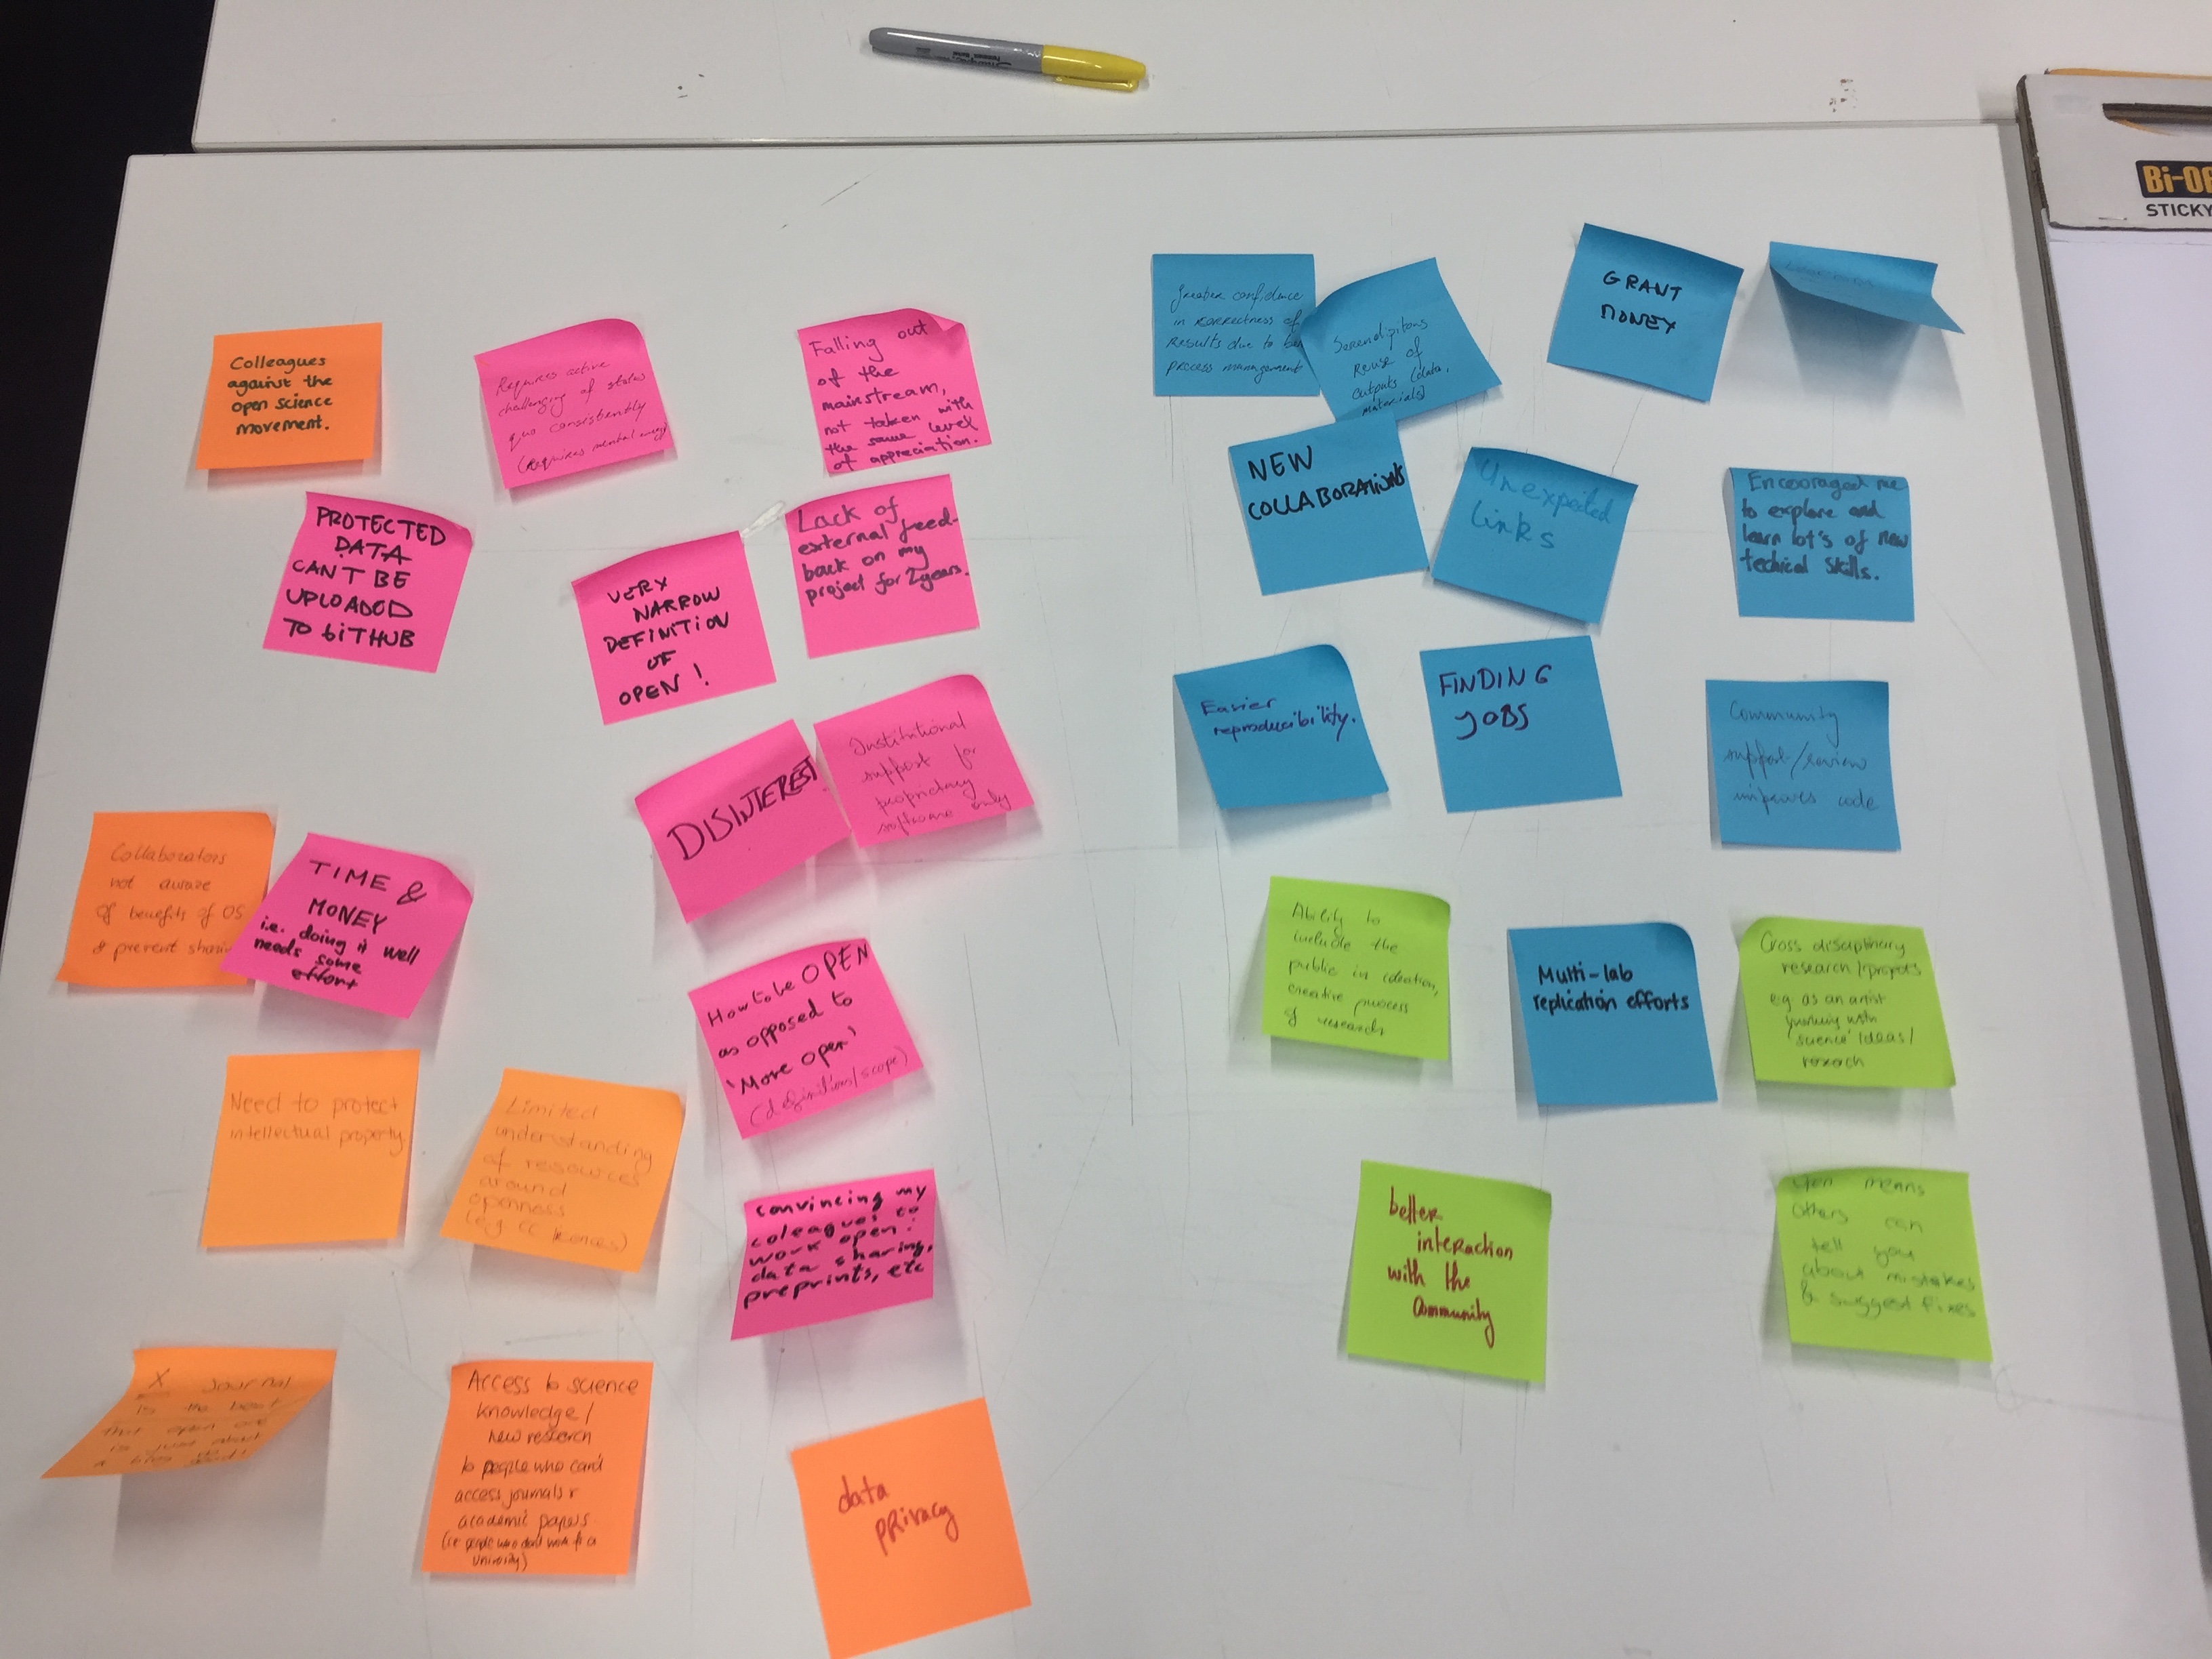 Bi-OF
STICKY
Colleagues
against the
open science
movement.
Requires active
challenging of status
quo consistently
(requires mental energy
Falling out
of the
mainstream,
not taken with
the same level
of appreciation.
PROTECTED
DATA
CAN'T BE
UPLOADED
TO GITHUB
VERY
NARROW
DEFINITION
OF
OPEN!
Lack of
external feed-
back on my
project for 2 years.
DISINTEREST
Institutional
support for
proprietary
software only
Collaborators
not aware
of benefits of OS
& prevent sharin
TIME &
MONEY
i.e. doing it well
needs some
effort
How to be OPEN
as opposed to
'More Open'
(definition/scope)
Need to protect
intellectual property
Limited
understanding
of resources
around
openness
(e.g CC licences)
convincing my
coleagues to
work open:
data sharing,
preprints, etc
X Journal
is the best
that open one
is just about
a
Access to science
knowledge/
new research
to people who can't
access journals r
academic papers
(i.e people who don't work for a
University)
data
privacy
Greater confidence
in correctness of
results due to
process management
Serendipitous
Reuse of
outputs (data,
materials)
GRANT
MONEY
NEW
COLLABORATIONS
Unexpected
links
Encouraged me
to explore and
learn lot's of new
techical skills.
Easier
reproducibility.
FINDING
JOBS
Community
support/review
improves code
Ability to
include the
public in ideation,
creative process
of research
Multi-lab
replication efforts
Cross disciplinary
research/projects
eg. as an artist
working with
'science' ideas/
research
better
interaction
with the
Community
Open means
others can
tell you
about mistakes
& suggest fixes